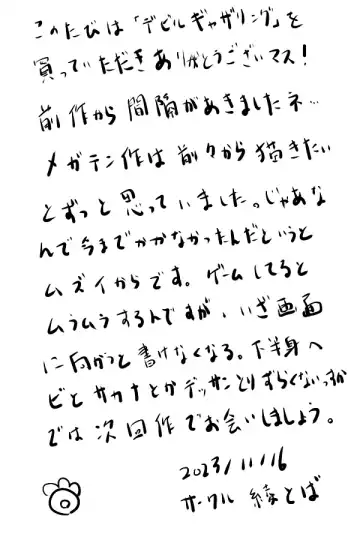 このたびは「デビルギャザリング」を
買っていただきありがとうございマス!
前作から間隔があきましたネ…
メガテン作は前々から描きたい
とずっと思っていました。じゃあな
んで今までかかなかったんだというと
ムズイからです。ゲームしてると
ムラムラするんですが、いざ画面
に向かうと書けなくなる。下半身ヘ
ビとかサカナとかデッサンとりずらくないっすか
では次回作でお会いしましょう。
2023/11/16
サークル 綾とば